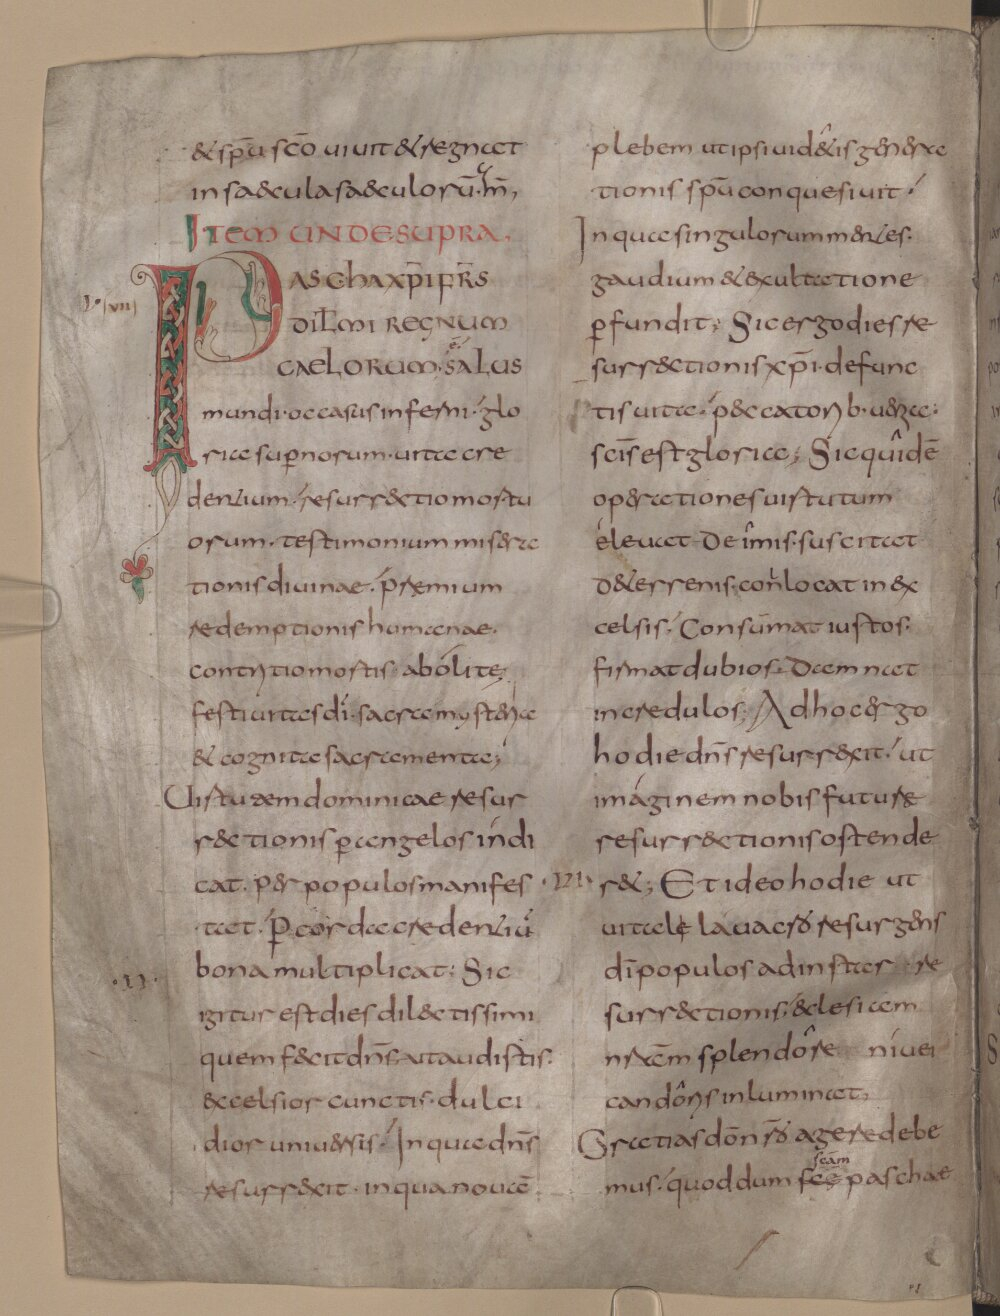 & sp̄u sc̄o uiuit & regnat
in saecula saeculorū. am̄,
ITEM UNDE SUPRA.
L· VII
PASCHA XP̄I FR̄S
DIL̄MI REGNUM
CAELORUM· ē SALUS
mundi· occasus inferni· glo
ria supernorum· uita cre
dentium· resurrectio mortu
orum· testimonium misera
tionis diuinae· praemium
redemptionis humanae·
contritio mortis· abolitę
festiuitas dī· sacra mysteria
& cognita sacramenta;
Uirtutem dominicae resur
rectionis p̲ angelos indi
cat· per populos manifes
tat· p̲ corda credentiū
bona multiplicat· Sic
·II·
igitur est dies dilectissimi
quem fecit dn̄s· ut audistis·
excelsior cunctis· dulci
dior uniuersis· In qua dn̄s
resurrexit· in qua nouā
plebem ut ipsi uidetis genera
tionis sp̄u conquesiuit·
In qua singulorum mentes·
gaudium & exultatione
p̲fundit; Sic ergo dies re
surrectionis xp̄i· defunc
tis uita· peccatorib· uenia·
sc̄is est gloria; Sic quidē
operationes uirtutum
eleuat· De imis· suscitat
de terrenis· conlocat in ex
celsis· Consūmat iustos·
firmat dubios· Damnat
incredulos; Ad hoc ergo
hodie dn̄s resurrexit· ut
imaginem nobis futurę
resurrectionis ostende
·III· ret; Et ideo hodie ut
uitalę lauacro resurgens
dī populos ad instar re
surrectionis· eclesiam
nr̄am splendore niuei
candoris inluminat,
Gratias don̄ ro agere debe
scām
mus· quod dum fes paschae